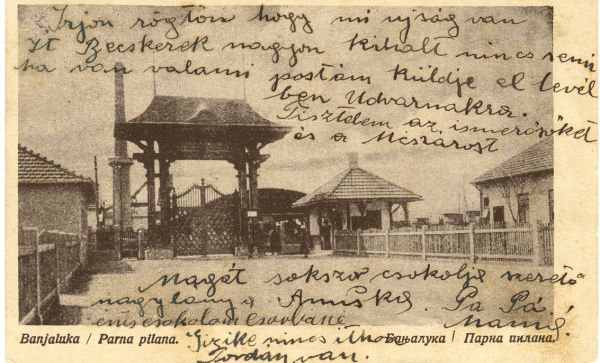 Irjon rögtön hogy mi ujság van
Itt Becskerek nagyon kihalt nincs semi
ha van valami postám küldje el levél
ben Udvarnokra.
Tisztelem az ismerősöket
és a Mészárost
Magát sokszor csokolja szerető
nagylánya Anuska. Pa Pá
én is csokolom Mamá!
Gizike nincs itthon
van.
Banjaluka / Parna pilana.
Бањалука / Парна пилана.